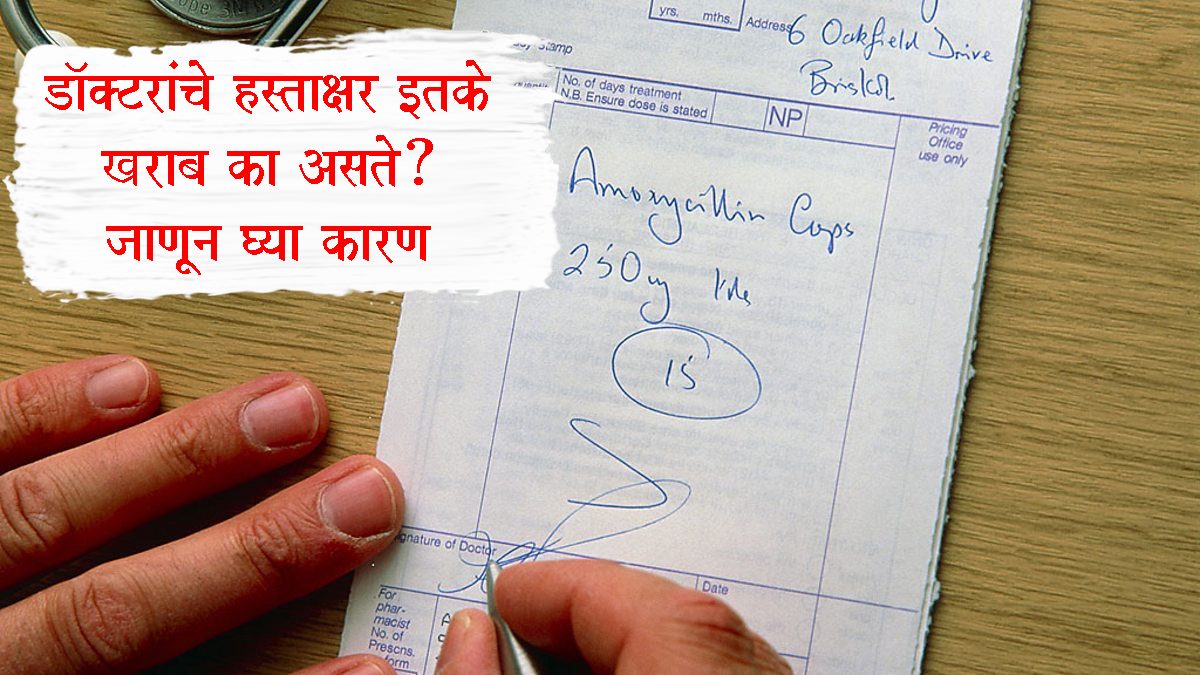 डॉक्टरांचे हस्ताक्षर इतके
खराब का असते?
जाणून घ्या कारण
yrs. mths.
Address
6 Oakfield Drive
Bristol
No. of days treatment
N.B. Ensure dose is stated
NP
Pricing
Office
use only
Amoxycillin Caps
250mg
15
Signature of Doctor
Date
For
phar-
macist
No. of
Prescns.